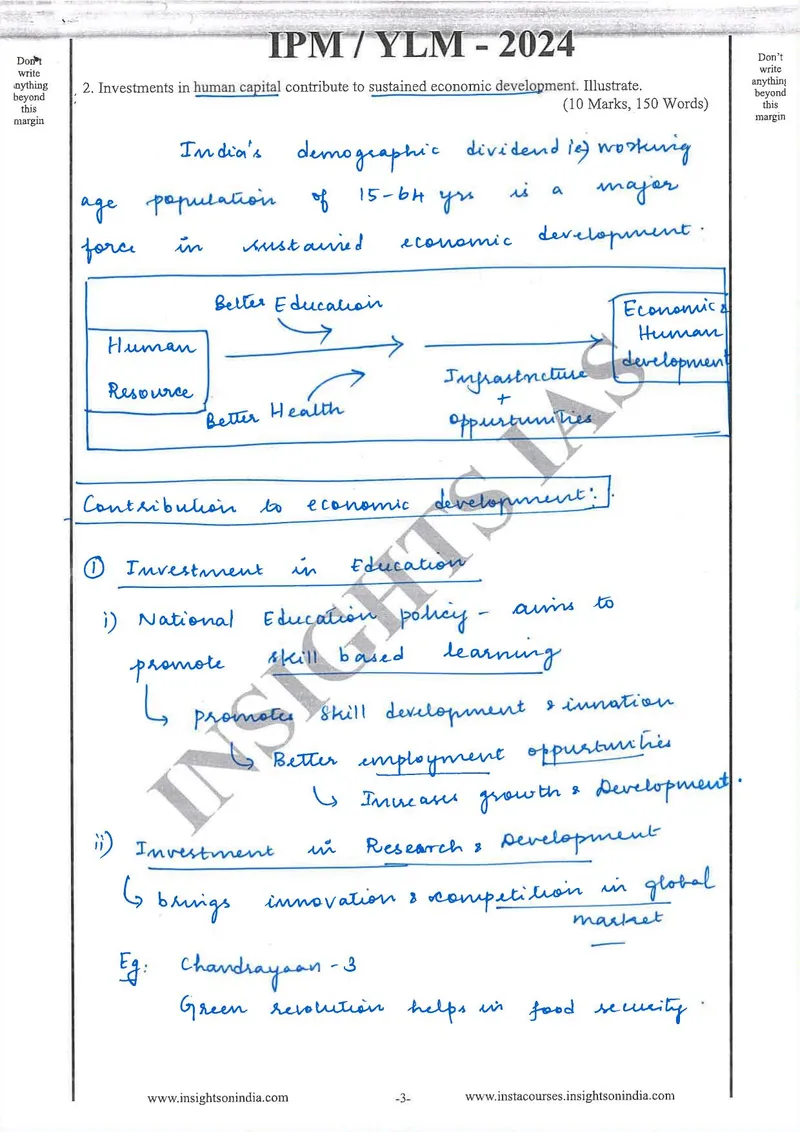 IPM / YLM - 2024
Don't
write
anything
beyond
this
margin
Don't
write
anything
beyond
this
margin
2. Investments in human capital contribute to sustained economic development. Illustrate.
(10 Marks, 150 Words)
India's demographic dividend ie) working
age population of 15-64 yrs is a major
force in sustained economic development.
Better Education
Human
Resource
Better Health
Infrastructure
+
oppurtunities
Economic &
Human
development
Contribution to economic development:
① Investment in Education
i) National Education policy - aims to
promote skill based learning
↳ promotes skill development & innation
↳ Better employment oppurtunities
↳ Increases growth & Development.
ii) Investment in Research & Development
↳ brings innovation & competition in global
market
Eg: Chandrayaan - 3
Green revolution helps in food security.
INSIGHTS IAS
www.insightsonindia.com
-3-
www.instacourses.insightsonindia.com